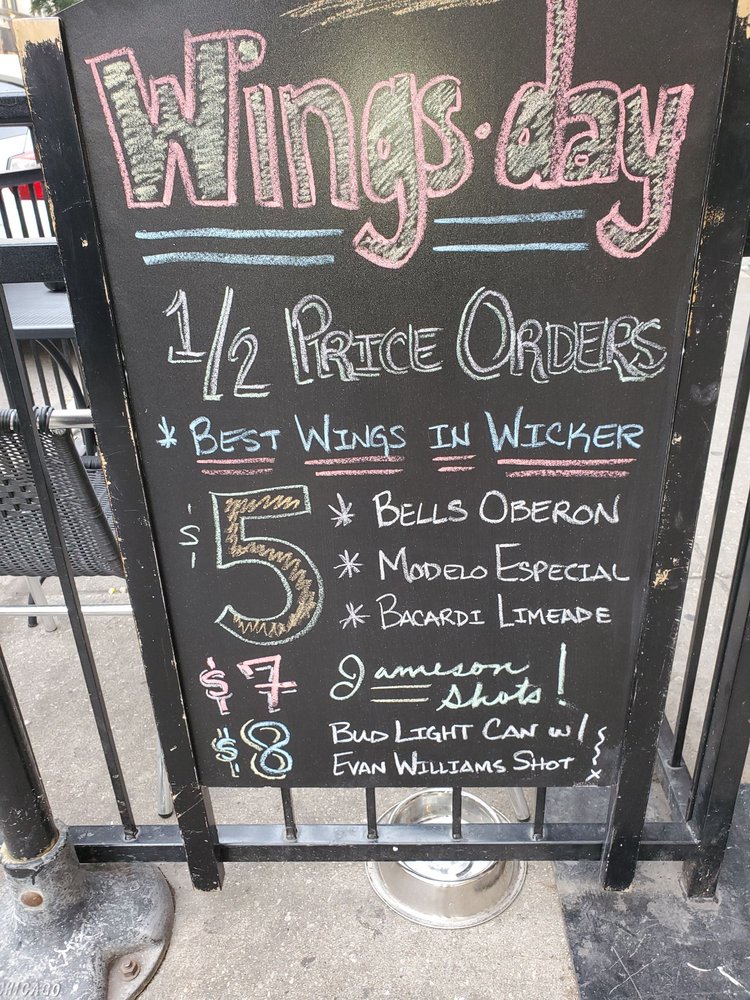 Wings·day
1/2 PRICE ORDERS
* BEST WINGS IN WICKER
$5 * BELLS OBERON
* MODELO ESPECIAL
* BACARDI LIMEADE
$7 Jameson Shots!
$8 BUD LIGHT CAN W/
EVAN WILLIAMS SHOT
CHICAGO